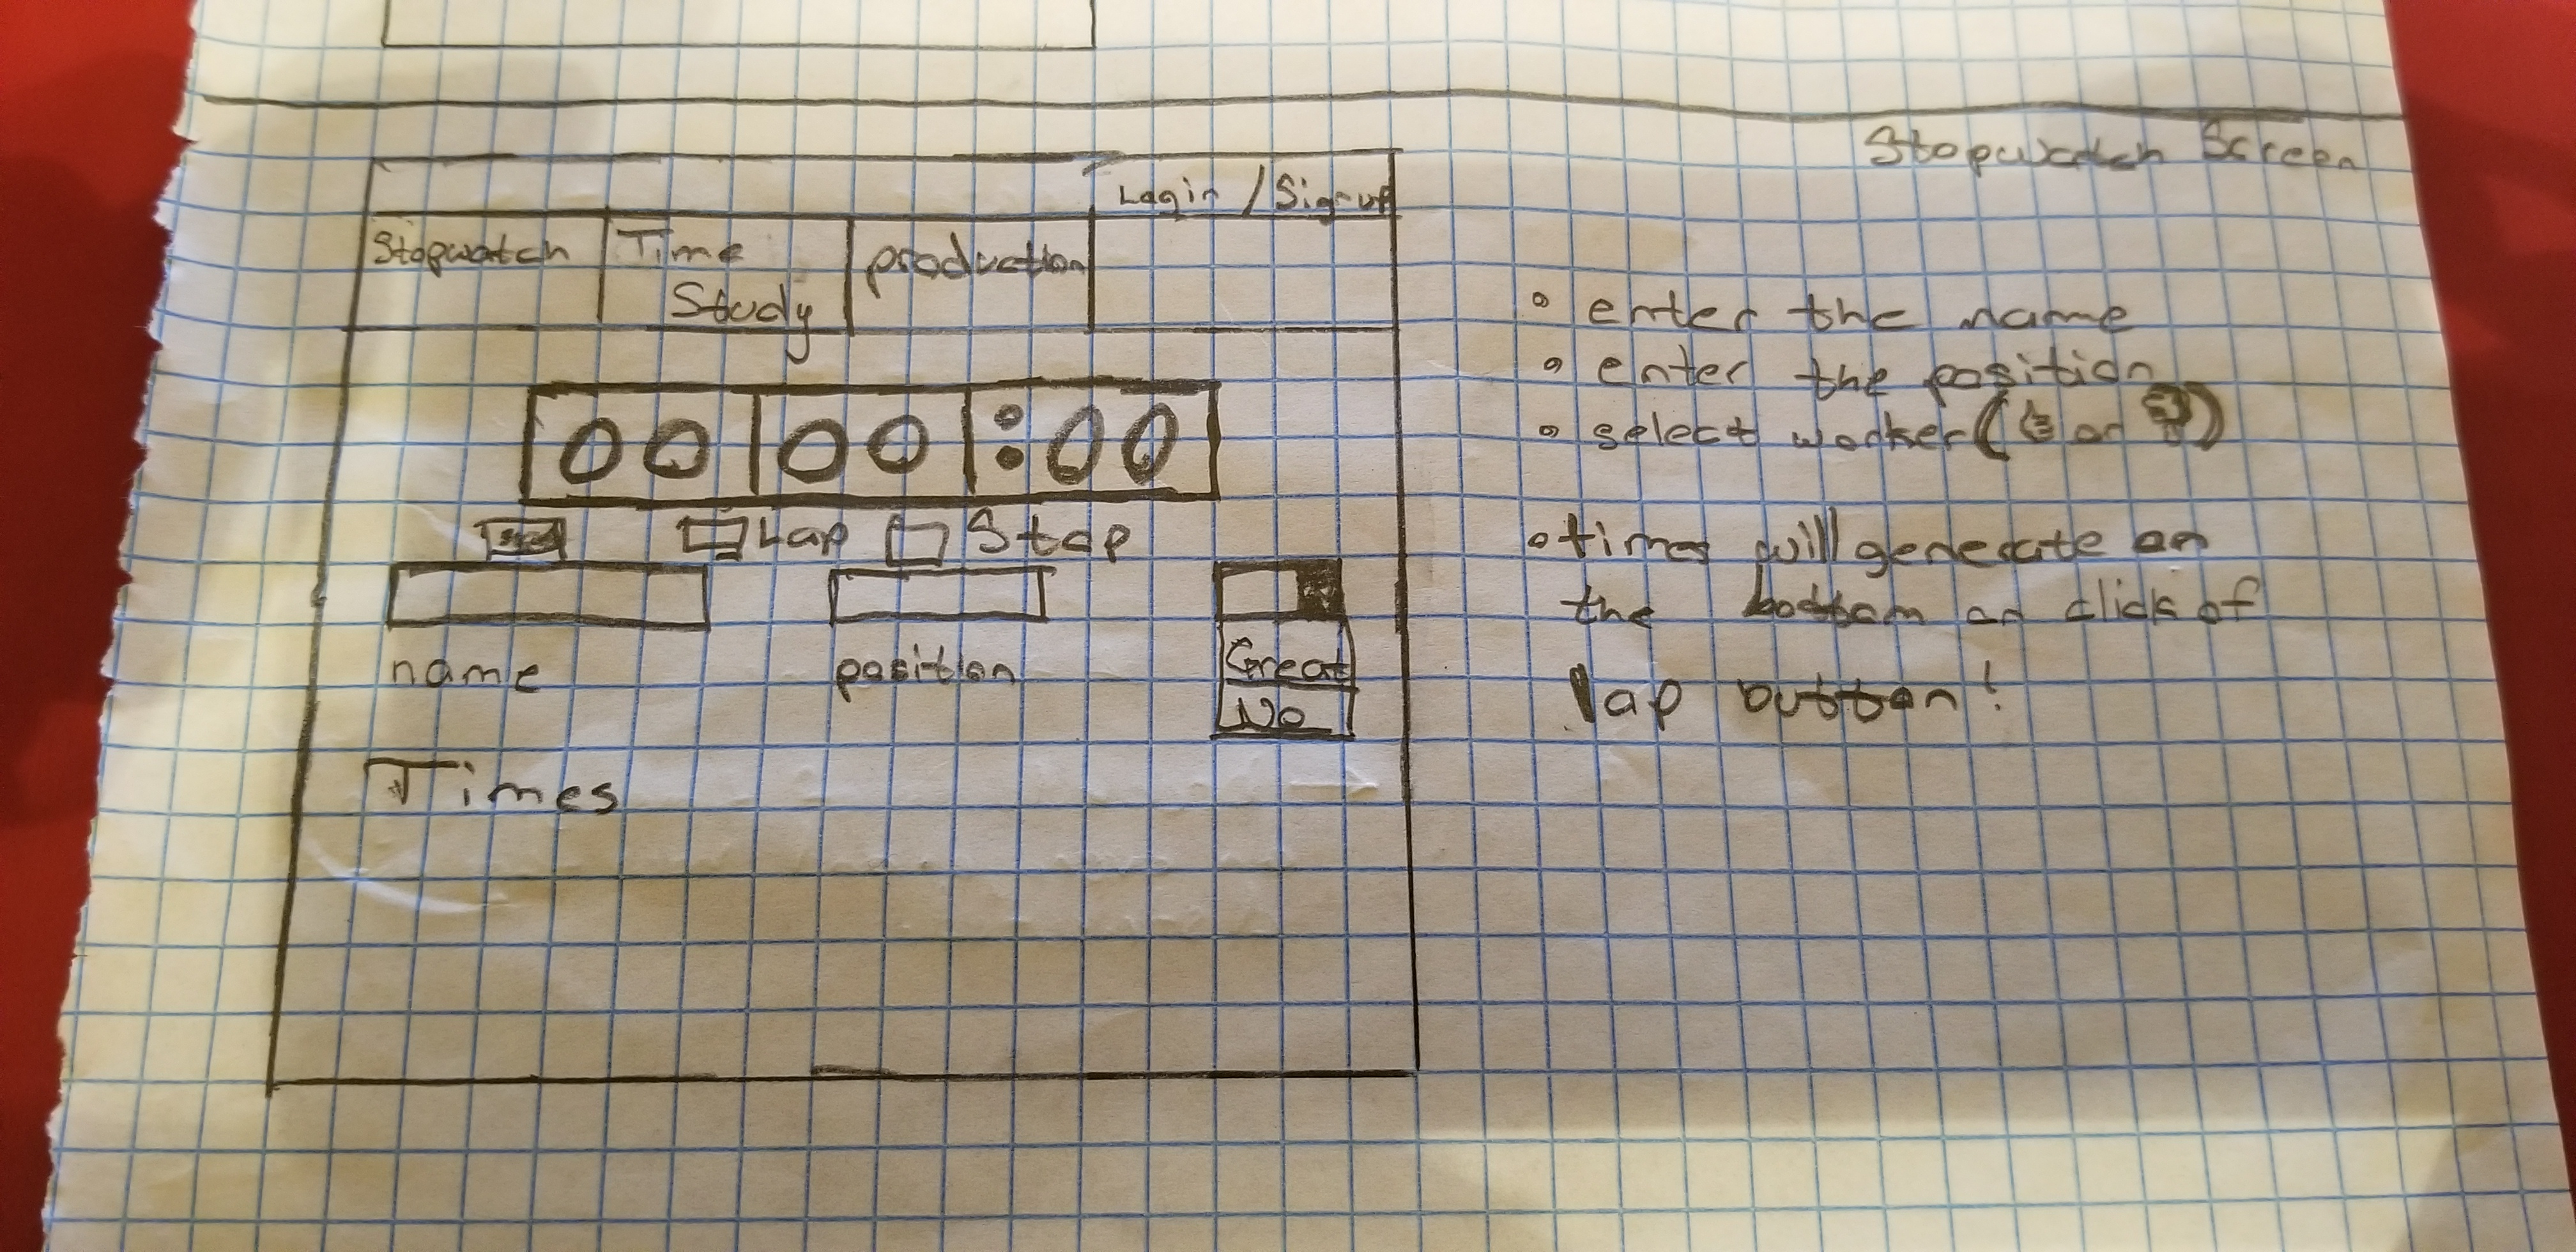 Stopwatch Screen
Login / Signup
Stopwatch
Time
Study
production
00 00 :00
Lap
Stop
name
position
Great
No
Times
• enter the name
• enter the position
• select worker ( or )
• times will generate on
the bottom on click of
lap button!